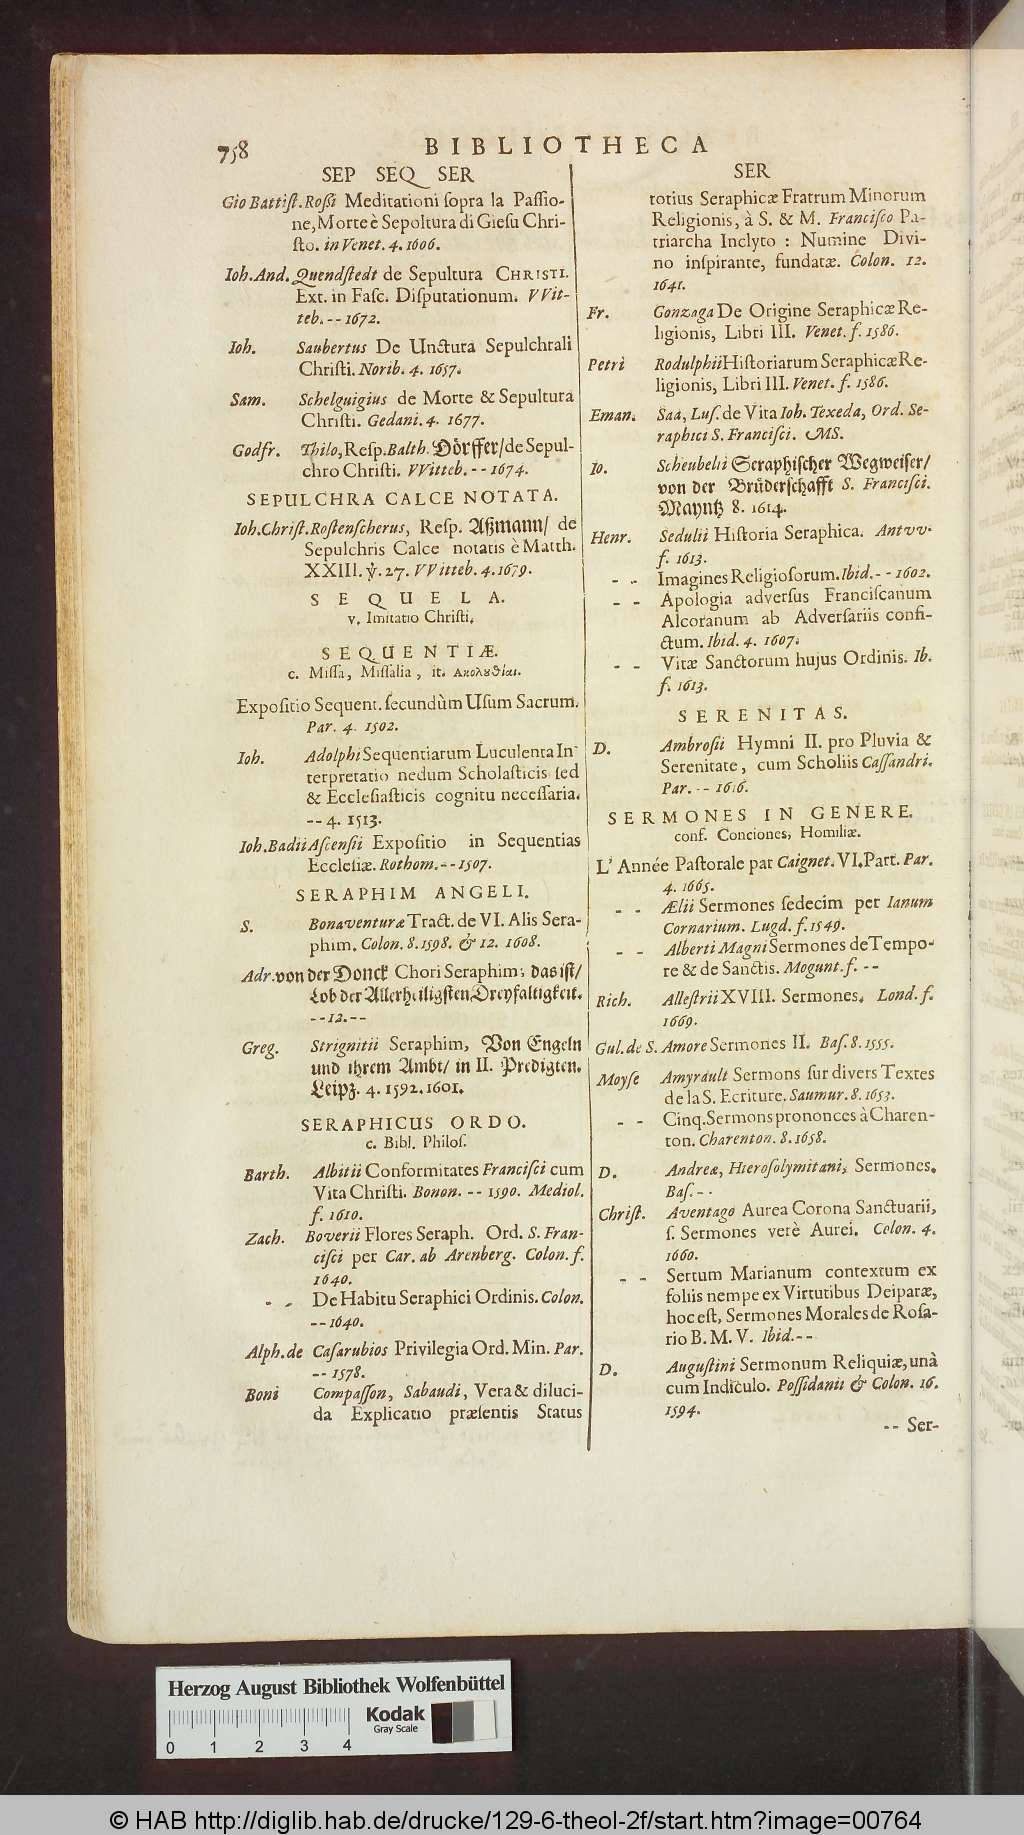 758
BIBLIOTHECA
SEP SEQ SER
Gio Battiſt. Roßi Meditationi ſopra la Paſſio-
ne, Morte è Sepoltura di Gieſu Chri-
ſto. in Venet. 4. 1606.
Ioh. And. Quendſtedt de Sepultura CHRISTI.
Ext. in Faſc. Diſputationum. VVit-
teb. -- 1672.
Ioh. Saubertus De Unctura Sepulchrali
Chriſti. Norib. 4. 1657.
Sam. Schelguigius de Morte & Sepultura
Chriſti. Gedani. 4. 1677.
Godfr. Thilo, Reſp. Balth. Dörffer/ de Sepul-
chro Chriſti. VVitteb. -- 1674.
SEPULCHRA CALCE NOTATA.
Ioh. Chriſt. Roſtenſcherus, Reſp. Aßmann/ de
Sepulchris Calce notatis è Matth.
XXIII. ℣. 27. VVitteb. 4. 1679.
SEQUELA.
v. Imitatio Chriſti.
SEQUENTIÆ.
c. Miſſa, Miſſalia, it. Ακολυθίαι.
Expoſitio Sequent. ſecundùm Uſum Sacrum.
Par. 4. 1502.
Ioh. Adolphi Sequentiarum Luculenta In-
terpretatio nedum Scholaſticis ſed
& Eccleſiaſticis cognitu neceſſaria.
-- 4. 1513.
Ioh. Badii Aſcenſii Expoſitio in Sequentias
Eccleſiæ. Rothom. -- 1507.
SERAPHIM ANGELI.
S. Bonaventuræ Tract. de VI. Alis Sera-
phim. Colon. 8. 1598. & 12. 1608.
Adr. von der Donck Chori Seraphim: das iſt/
Lob der Allerheiligſten Dreyfaltigkeit.
-- 12. --
Greg. Strignitii Seraphim, Von Engeln
und ihrem Ambt/ in II. Predigten.
Leipz. 4. 1592. 1601.
SERAPHICUS ORDO.
c. Bibl. Philoſ.
Barth. Albitii Conformitates Franciſci cum
Vita Chriſti. Bonon. -- 1590. Mediol.
f. 1610.
Zach. Boverii Flores Seraph. Ord. S. Fran-
ciſci per Car. ab Arenberg. Colon. f.
1640.
- - De Habitu Seraphici Ordinis. Colon.
-- 1640.
Alph. de Caſarubios Privilegia Ord. Min. Par.
-- 1578.
Boni Compaſſon, Sabaudi, Vera & diluci-
da Explicatio præſentis Status
SER
totius Seraphicæ Fratrum Minorum
Religionis, à S. & M. Franciſco Pa-
triarcha Inclyto : Numine Divi-
no inſpirante, fundatæ. Colon. 12.
1641.
Fr. Gonzaga De Origine Seraphicæ Re-
ligionis, Libri III. Venet. f. 1586.
Petri Rodulphii Hiſtoriarum Seraphicæ Re-
ligionis, Libri III. Venet. f. 1586.
Eman. Saa, Luſ. de Vita Ioh. Texeda, Ord. Se-
raphici S. Franciſci. MS.
Io. Scheubelii Seraphiſcher Wegweiſer/
von der Brüderſchafft S. Franciſci.
Mayntz 8. 1614.
Henr. Sedulii Hiſtoria Seraphica. Antvv.
f. 1613.
- - Imagines Religioſorum. Ibid. -- 1602.
- - Apologia adverſus Franciſcanum
Alcoranum ab Adverſariis confi-
ctum. Ibid. 4. 1607.
- - Vitæ Sanctorum hujus Ordinis. Ib.
f. 1613.
SERENITAS.
D. Ambroſii Hymni II. pro Pluvia &
Serenitate, cum Scholiis Caſſandri.
Par. -- 1616.
SERMONES IN GENERE.
conf. Conciones, Homiliæ.
L' Année Paſtorale par Caignet. VI. Part. Par.
4. 1665.
- - Ælii Sermones ſedecim per Ianum
Cornarium. Lugd. f. 1549.
- - Alberti Magni Sermones de Tempo-
re & de Sanctis. Mogunt. f. --
Rich. Alleſtrii XVIII. Sermones. Lond. f.
1669.
Gul. de S. Amore Sermones II. Baſ. 8. 1555.
Moyſe Amyrault Sermons ſur divers Textes
de la S. Ecriture. Saumur. 8. 1653.
- - Cinq. Sermons prononces à Charen-
ton. Charenton. 8. 1658.
D. Andreæ, Hieroſolymitani, Sermones.
Baſ. --
Chriſt. Aventago Aurea Corona Sanctuarii,
ſ. Sermones verè Aurei. Colon. 4.
1660.
- - Sertum Marianum contextum ex
foliis nempe ex Virtutibus Deiparæ,
hoc eſt, Sermones Morales de Roſa-
rio B. M. V. Ibid. --
D. Auguſtini Sermonum Reliquiæ, unà
cum Indiculo. Poſſidanii & Colon. 16.
1594.
-- Ser-
Herzog August Bibliothek Wolfenbüttel
Kodak
Gray Scale
0 1 2 3 4
© HAB http://diglib.hab.de/drucke/129-6-theol-2f/start.htm?image=00764